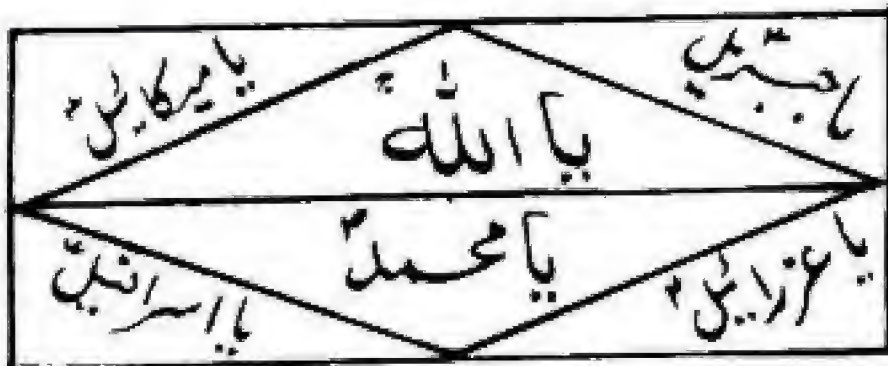 یا جبریل
یا میکایل
یا الله
یا محمد
یا عزرایل
یا اسرافیل